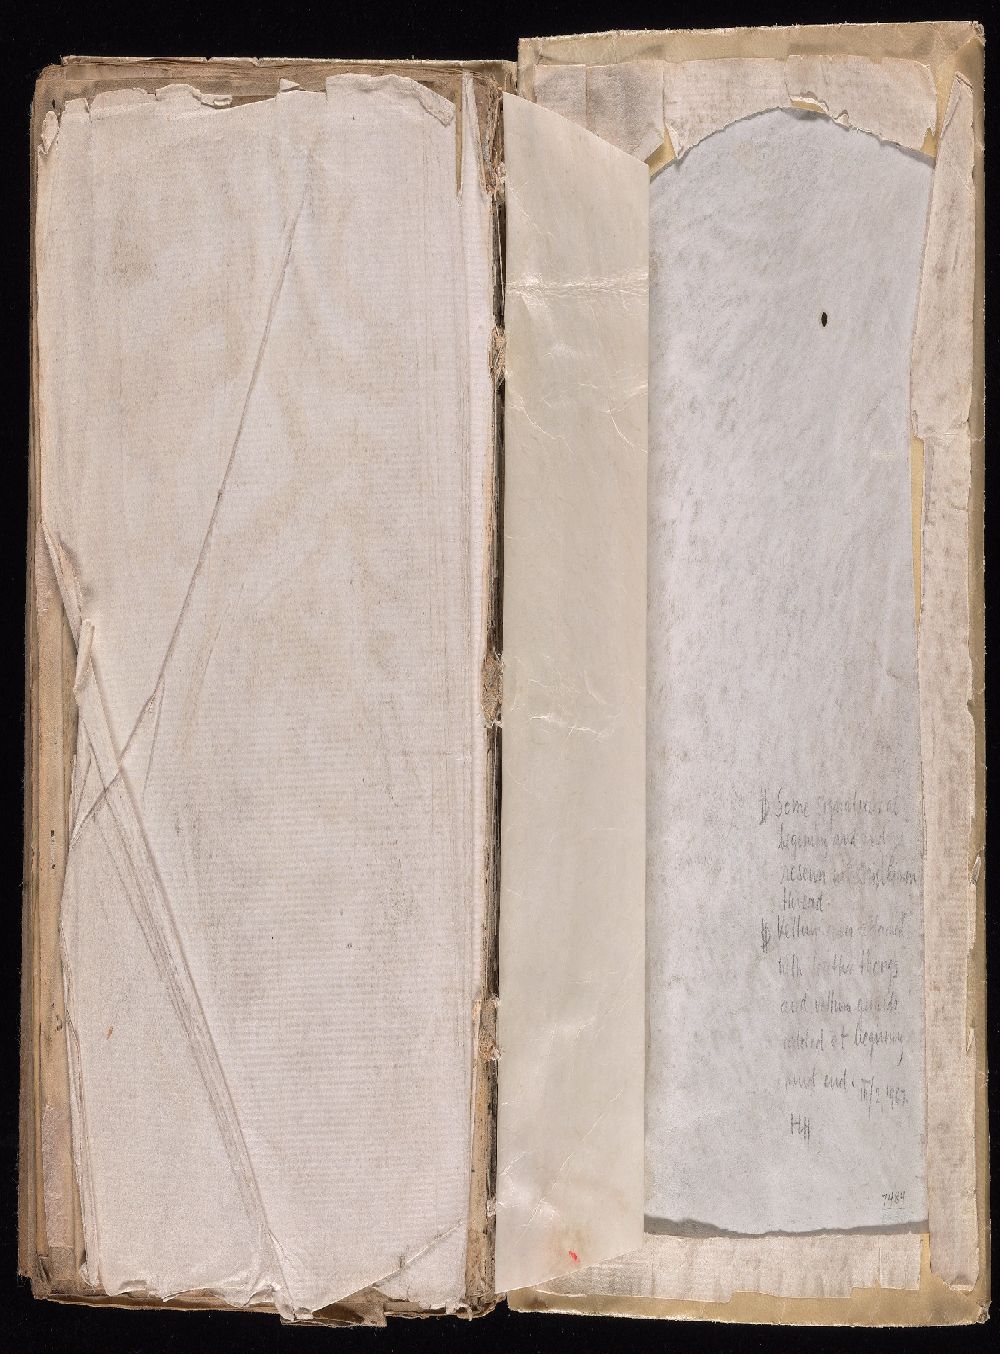 1) Some signatures at
beginning and end
resewn with
thread.
2) Vellum cover attached
with leather thongs
and vellum guards
added at beginning
and end. III/2 1967.
HH
7484